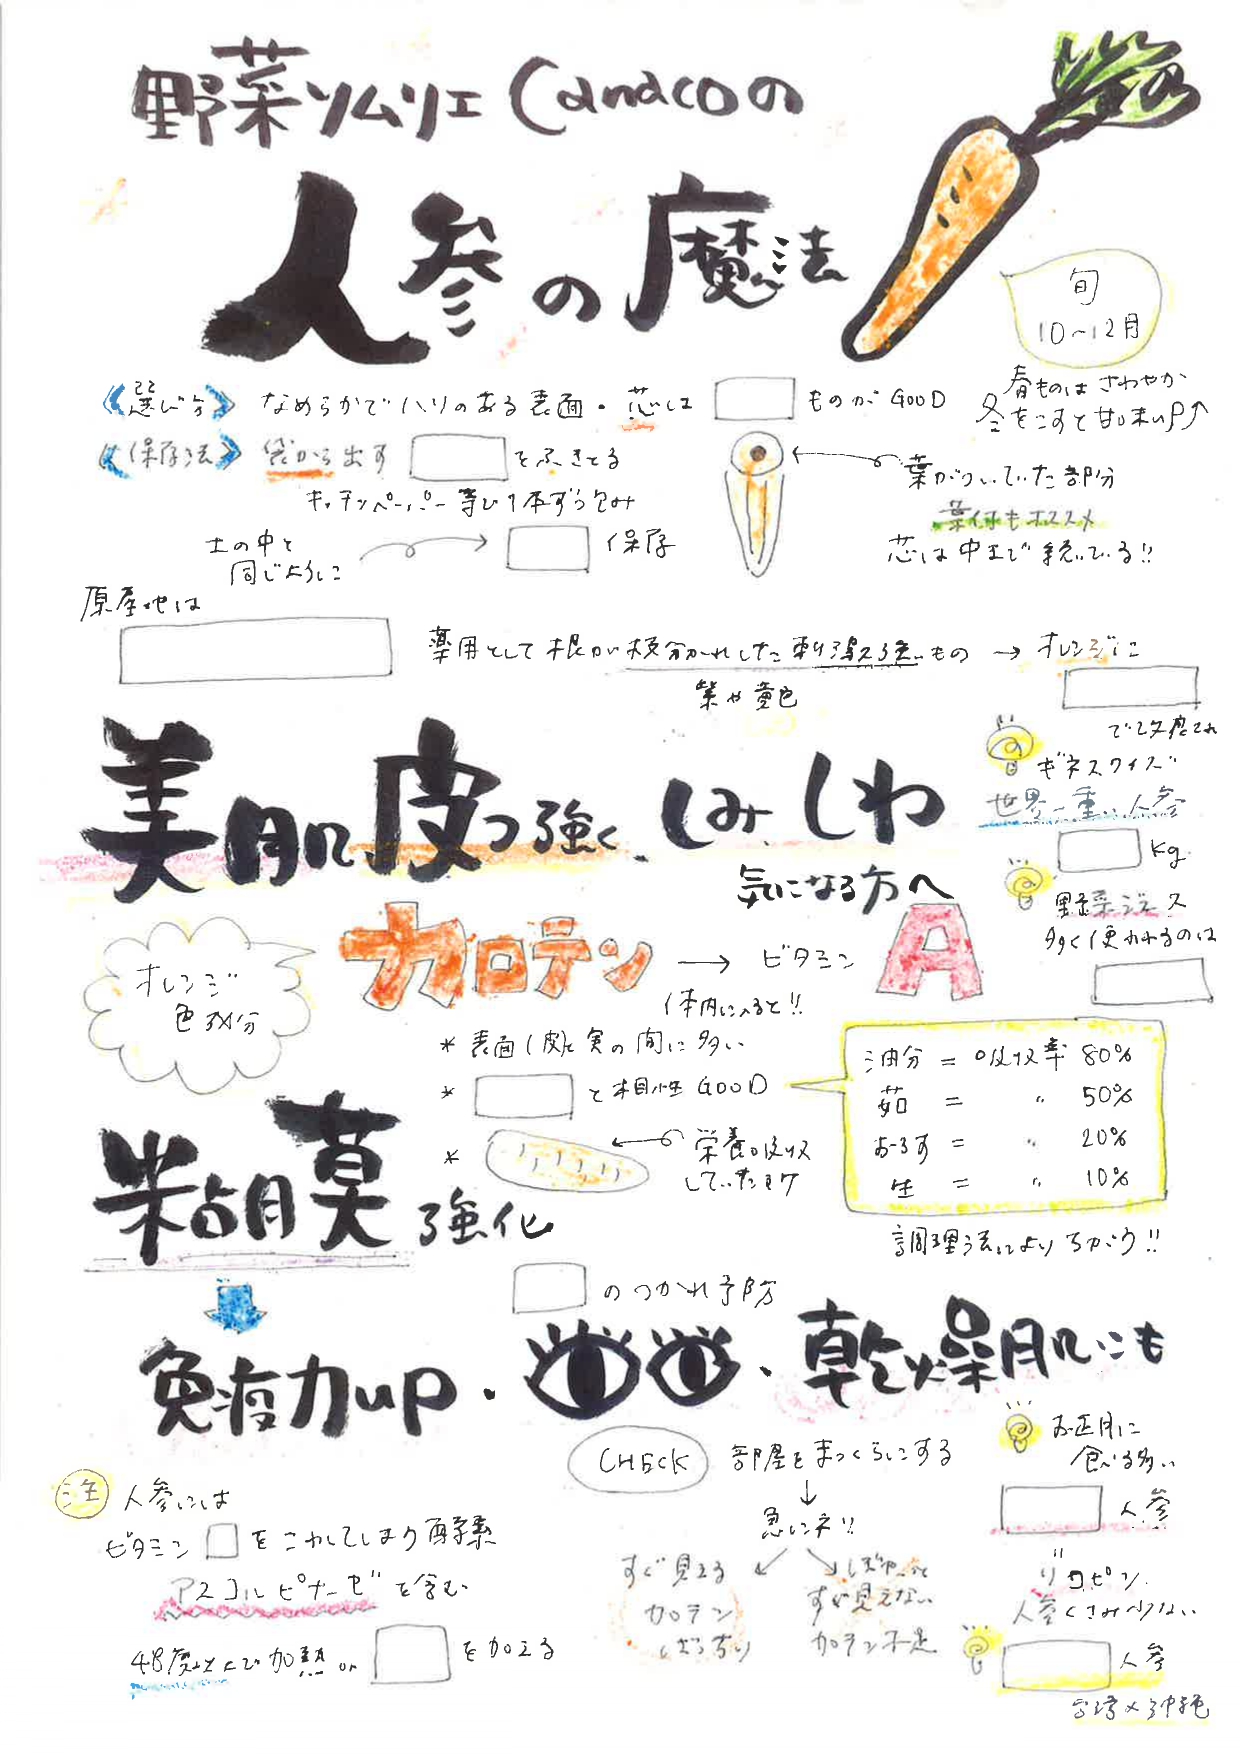 野菜ソムリエ Canacoの
人参の魔法
旬
10〜12月
春ものは さわやか
冬をこすと甘味up↑
《選び方》 なめらかでハリのある表面・芯は ものが GOOD
《保存法》 袋から出す をふきとる
キッチンペーパー等で1本ずつ包み
土の中と
同じように
保存
葉がついていた部分
葉付もオススメ
芯は中まで続いている!!
原産地は
薬用として根が枝分かれした刺激強いもの → オレンジに
紫や黄色
で改良され
ギネスクイズ
世界一重い人参
kg
野菜ジュース
多く使われるのは
美肌 皮フ強く、しみ、しわ
気になる方へ
オレンジ
色成分
カロテン → ビタミン A
体内に入ると!!
* 表面(皮と実の間に多い
* と相性 GOOD
* 栄養吸収
していたヒゲ
油分 = 吸収率 80%
茹 = 〃 50%
おろす = 〃 20%
生 = 〃 10%
調理法によりちがう!!
粘膜強化
のつかれ予防
免疫力up・ ・乾燥肌にも
CHECK 部屋をまっくらにする
↓
急にネ!!
すぐ見える
カロテン
ばっちり
ぼやっと
すぐ見えない
カロテン不足
お正月に
食べる多い
人参
リコピン
人参くさみ少ない
人参
台湾×沖縄
注 人参には
ビタミン をこわしてしまう酵素
アスコルビナーゼを含む
48度以上で加熱 or を加える